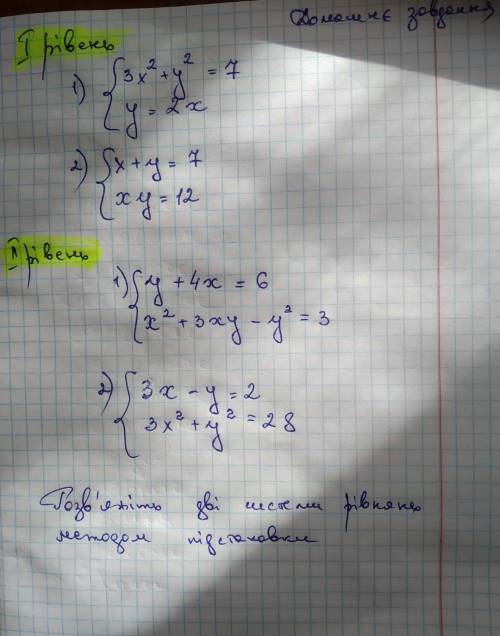 Домашнє завдання
I рівень
1) { 3x² + y² = 7
y = 2x
2) { x + y = 7
xy = 12
II рівень
1) { y + 4x = 6
x² + 3xy - y² = 3
2) { 3x - y = 2
3x² + y² = 28
Розв'яжіть дві системи рівнянь
методом підстановки